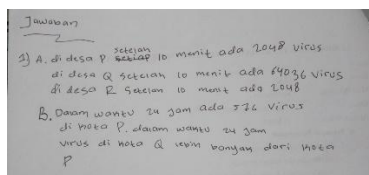 Jawaban
1) A. di desa P setelah 10 menit ada 2048 virus
di desa Q setelah 10 menit ada 64036 virus
di desa R setelah 10 menit ada 2048
B. Dalam waktu 24 jam ada 576 virus
di kota P. dalam waktu 24 jam
virus di kota Q lebih banyak dari kota
P